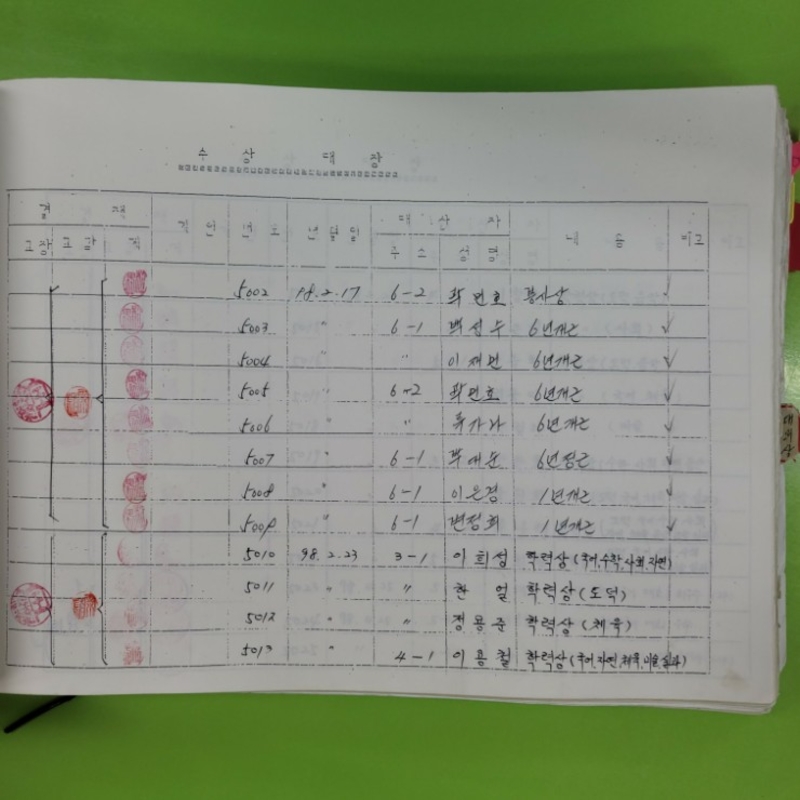 수 상 대 장
결 재 년월일 대 상 자 내 용 비고
교장 교감 계 번 호 주 소 성 명
5002 98.2.17 6-2 곽민호 봉사상 ✓
5003 〃 6-1 백성수 6년개근 ✓
5004 〃 〃 이재민 6년개근 ✓
5005 〃 6-2 곽민호 6년개근 ✓
5006 〃 〃 6년개근 ✓
5007 〃 6-1 6년정근 ✓
5008 〃 6-1 이은경 1년개근 ✓
5009 〃 6-1 변정희 1년개근 ✓
5010 98.2.23 3-1 이희성 학력상(국어,수학,사회,자연)
5011 〃 〃 한 얼 학력상(도덕)
5012 〃 〃 정용준 학력상(체육)
5013 〃 4-1 이용철 학력상(국어,자연,체육,미술,실과)